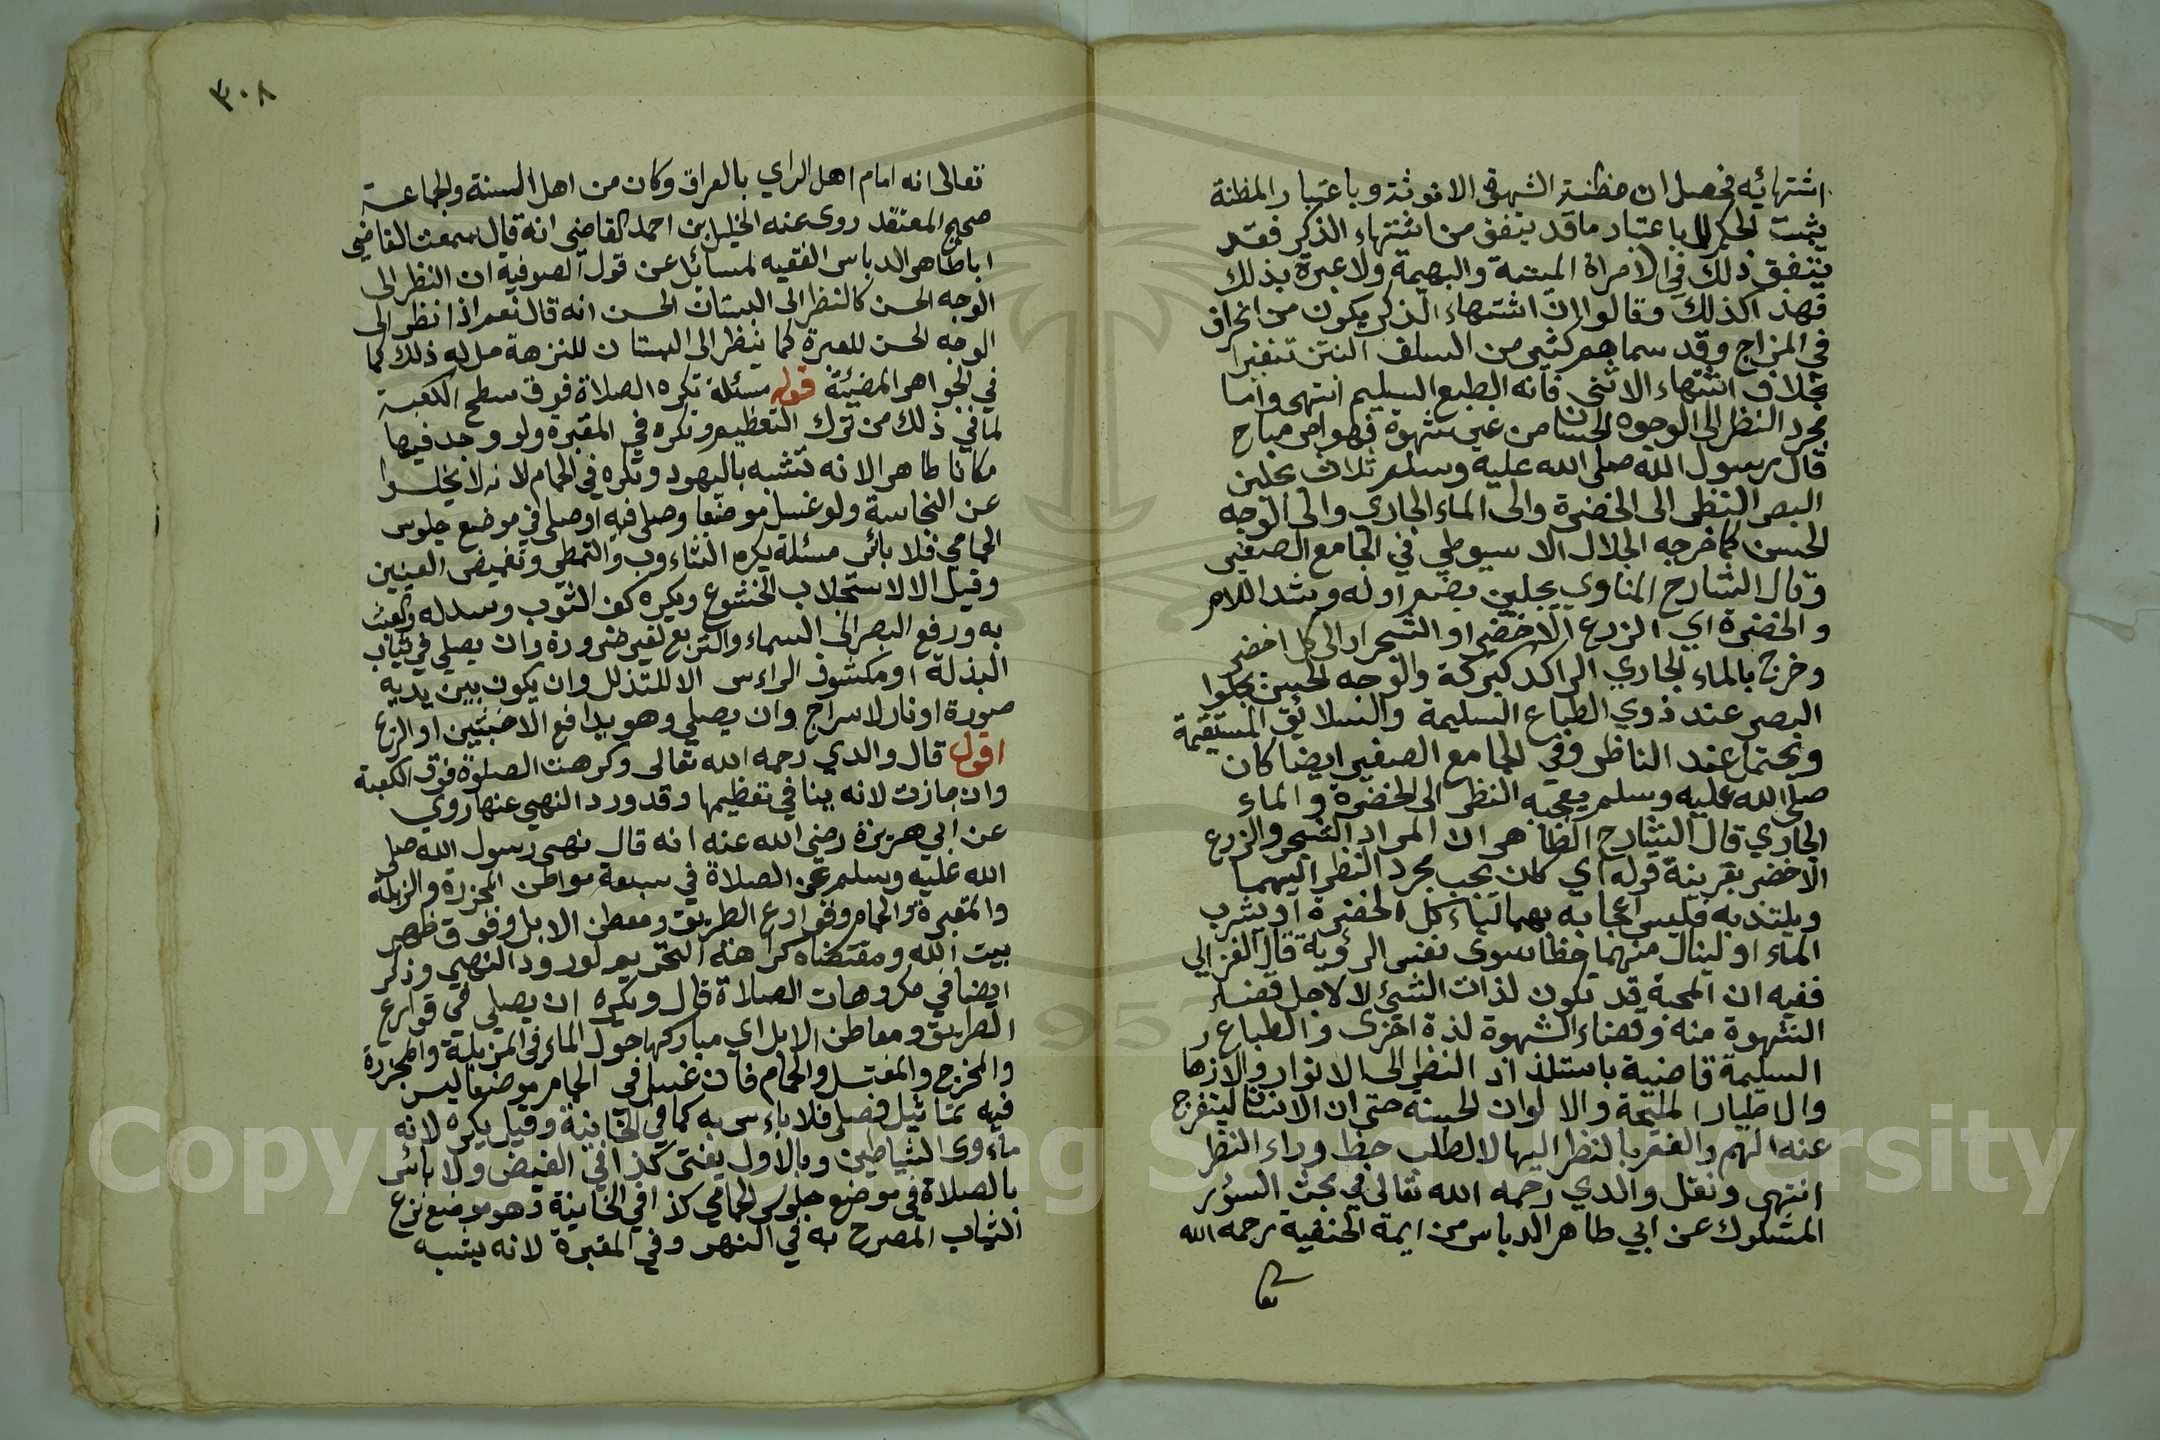 اشتهائيه فحصل ان مظنة الشهوة الانوثة وباعتبار المظنة
يثبت الحكم لا باعتبار ما قد يتفق من اشتهاء الذكر فقد
يتفق ذلك في الامراة الميتة والبهيمة ولا عبرة بذلك
فهذا كذلك وقالوا ان اشتهاء الذكر يكون من انحراف
في المزاج وقد سماهم كثير من السلف النتن تنفيرا
بخلاف اشتهاء الانثى فانه الطبع السليم انتهى واما
مجرد النظر الى الوجوه الحسان من غير شهوة فهو امر مباح
قال رسول الله صلى الله عليه وسلم ثلاث يجلين
البصر النظر الى الخضرة والى الماء الجاري والى الوجه
الحسن كما خرجه الجلال الاسيوطي في الجامع الصغير
وقال الشارح المناوي يجلين بضم اوله وشد اللام
والخضرة اي الزرع الاخضر او الشجر او الى كل اخضر
وخرج بالماء الجاري الراكد كبركة والوجه الحسن يجلوا
البصر عند ذوي الطباع السليمة والسلائق المستقيمة
ويحتمل عند الناظر وفي الجامع الصغير ايضا كان
صلى الله عليه وسلم يعجبه النظر الى الخضرة والماء
الجاري قال الشارح الظاهر ان المراد الشجر والزرع
الاخضر بقرينة قوله اي كان يحب مجرد النظر اليهما
ويلتذ به فليس اعجابه بهما لياكل الخضرة او يشرب
الماء او لينال منهما حظا سوى نفس الرؤية قال الغزالي
ففيه ان المحبة قد تكون لذات الشئ لا لاجل قضاء
الشهوة منه وقضاء الشهوة لذة اخرى والطباع
السليمة قاضية باستلذاذ النظر الى الانوار والازهار
والاطيار المليحة والالوان الحسنه حتى ان الانسان ليتفرج
عنه الهم والغم بالنظر اليها لا لطلب حظ وراء النظر
انتهى ونقل والدي رحمه الله تعالى في بحث السؤر
المشكوك عن ابي طاهر الدباس من ايمة الحنفية رحمه الله
تعالى
٣٠٨
تعالى انه امام اهل الراي بالعراق وكان من اهل السنة والجماعة
صحيح المعتقد روى عنه الخليل بن احمد القاضي انه قال سمعت القاضي
اباطاهر الدباس الفقيه لمسائل عن قول الصوفية ان النظر الى
الوجه الحسن كالنظر الى البستان الحسن انه قال نعم اذا نظر الى
الوجه الحسن للعبرة كما ينظر الى البستان للنزهة حل له ذلك كما
في الجواهر المضيئة قوله مسئلة تكره الصلاة فوق سطح الكعبة
لما في ذلك من ترك التعظيم وتكره في المقبرة ولو وجد فيها
مكانا طاهرا لانه تشبه باليهود وتكره في الحمام لانه لا يخلوا
عن النجاسة ولو غسل موضعا وصلى فيه او صلى في موضع جلوس
الحمامي فلا باس مسئلة يكره التثاؤب والتمطى وتغميض العينين
وقيل الا لاستجلاب الخشوع ويكره كف الثوب وسدله والعبث
به ورفع البصر الى السماء والتربع لغير ضرورة وان يصلي في ثياب
البذلة او مكشوف الراس الا للتذلل وان يكون بين يديه
صورة او نار لا سراج وان يصلي وهو يدافع الاخبثين او الريح
اقول قال والدي رحمه الله تعالى وكرهت الصلوة فوق الكعبة
وان جازت لانه ينافي تعظيمها وقد ورد النهي عنها روي
عن ابي هريرة رضي الله عنه انه قال نهى رسول الله صلى
الله عليه وسلم عن الصلاة في سبعة مواطن المجزرة والمزبلة
والمقبرة والحمام وقوارع الطريق ومعطن الابل وفوق ظهر
بيت الله ومقتضاه كراهة التحريم لورود النهي وذكر
ايضا في مكروهات الصلاة قال ويكره ان يصلي في قوارع
الطريق ومعاطن الابل اي مباركها حول الماء وفي المزبلة والمجزرة
والمخرج والمغتسل والحمام فان غسل في الحمام موضعا ليس
فيه تماثيل فصلى فلا باس به كما في الخانية وقيل يكره لانه
ماوى الشياطين وبالاول يفتى كذا في الفيض ولا باس
بالصلاة في موضع جلوس الحمامي كذا في الخانية وهو موضع نزع
الثياب المصرح به في النهر وفي المقبرة لانه يشبه